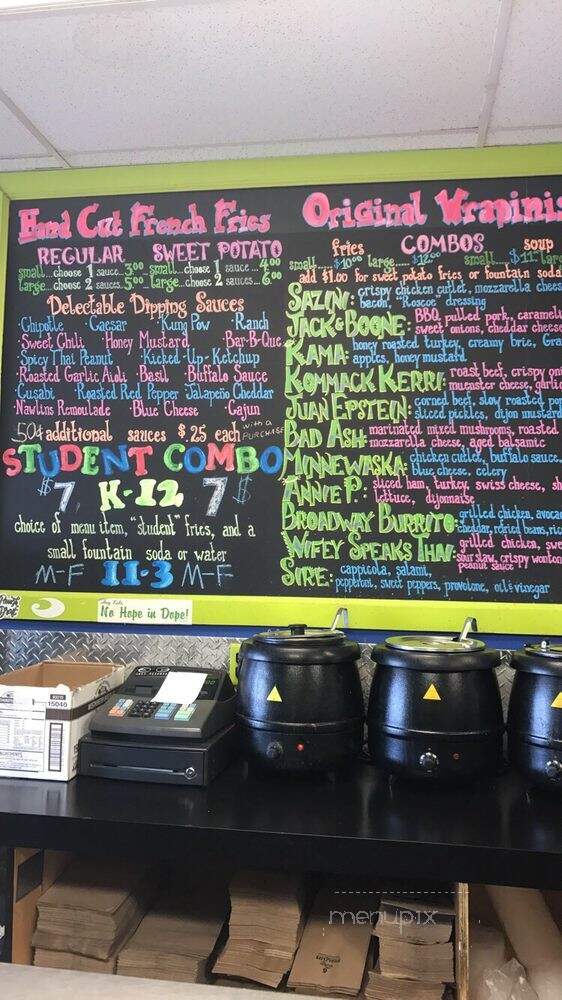 Hand Cut French Fries
REGULAR SWEET POTATO
small...choose 1 sauce...3.00 small...choose 1 sauce...4.00
large...choose 2 sauces..5.00 large...choose 2 sauces...6.00
Delectable Dipping Sauces
·Chipotle ·Caesar ·Kung Pow ·Ranch
·Sweet Chili ·Honey Mustard ·Bar-B-Que
·Spicy Thai Peanut ·Kicked-Up-Ketchup
·Roasted Garlic Aioli ·Basil ·Buffalo Sauce
·Cusabi ·Roasted Red Pepper ·Jalapeño Cheddar
·Nawlins Remoulade ·Blue Cheese ·Cajun
50¢ additional sauces $.25 each with a PURCHASE
STUDENT COMBO
$7 K-12 7$
choice of menu item, "student" fries, and a
small fountain soda or water
M-F 11-3 M-F
Original Wrapinis
COMBOS
fries soup
small....$10.00 large....$12.00 small....$11.
add $1.00 for sweet potato fries or fountain soda
SAZINI: crispy chicken cutlet, mozzarella cheese
bacon, "Roscoe" dressing
JACK & BOONE: BBQ pulled pork, carameli
sweet onions, cheddar cheese
KAMA: honey roasted turkey, creamy brie, Gra
apples, honey mustard
KOMMACK KERRI: roast beef, crispy oni
muenster cheese, garlic
JUAN EPSTEIN: corned beef, slow roasted por
sliced pickles, dijon mustard
BAD ASH: marinated mixed mushrooms, roasted
mozzarella cheese, aged balsamic
MINNEWASKA: chicken cutlet, buffalo sauce
blue cheese, celery
ANNIE P.: sliced ham, turkey, swiss cheese, sh
lettuce, dijonnaise
BROADWAY BURRITO: grilled chicken, avoca
cheddar, refried beans, rice
WIFEY SPEAKS THAI: grilled chicken, swe
sour slaw, crispy wonton
peanut sauce
SIRE: cappicola, salami,
pepperoni, sweet peppers, provolone, oil & vinegar
No Hope in Dope!
15040
menupix